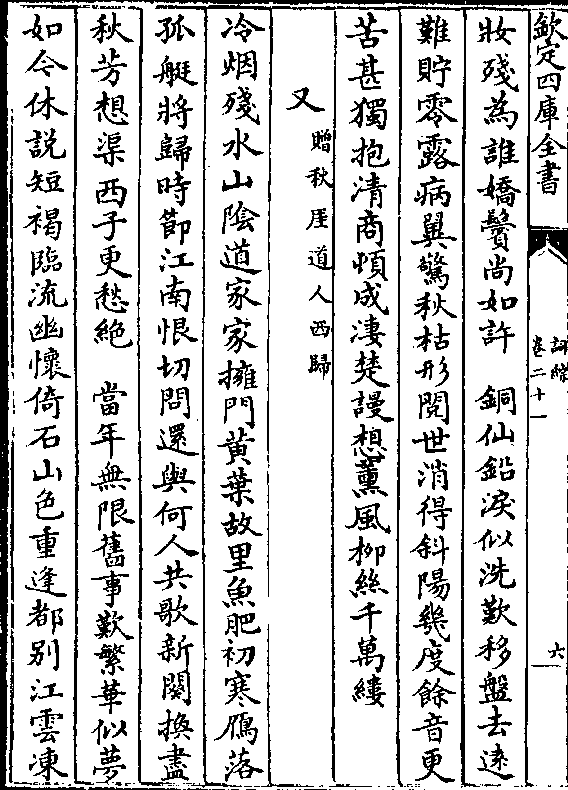 欽定四庫全書
詞綜
卷二十一
六
妝殘為誰嬌鬢尚如許　銅仙鉛淚似洗歎移盤去逺
難貯零露病翼驚秋枯形閱世消得斜陽幾度餘音更
苦甚獨抱清商頓成淒楚謾想薰風栁絲千萬縷
又贈秋崖道人西歸
冷烟殘水山陰道家家擁門黄葉故里魚肥初寒鴈落
孤艇將歸時節江南恨切問還與何人共歌新闋換盡
秋芳想渠西子更愁絶　當年無限舊事歎繁華似夢
如今休說短褐臨流幽懷倚石山色重逢都别江雲凍